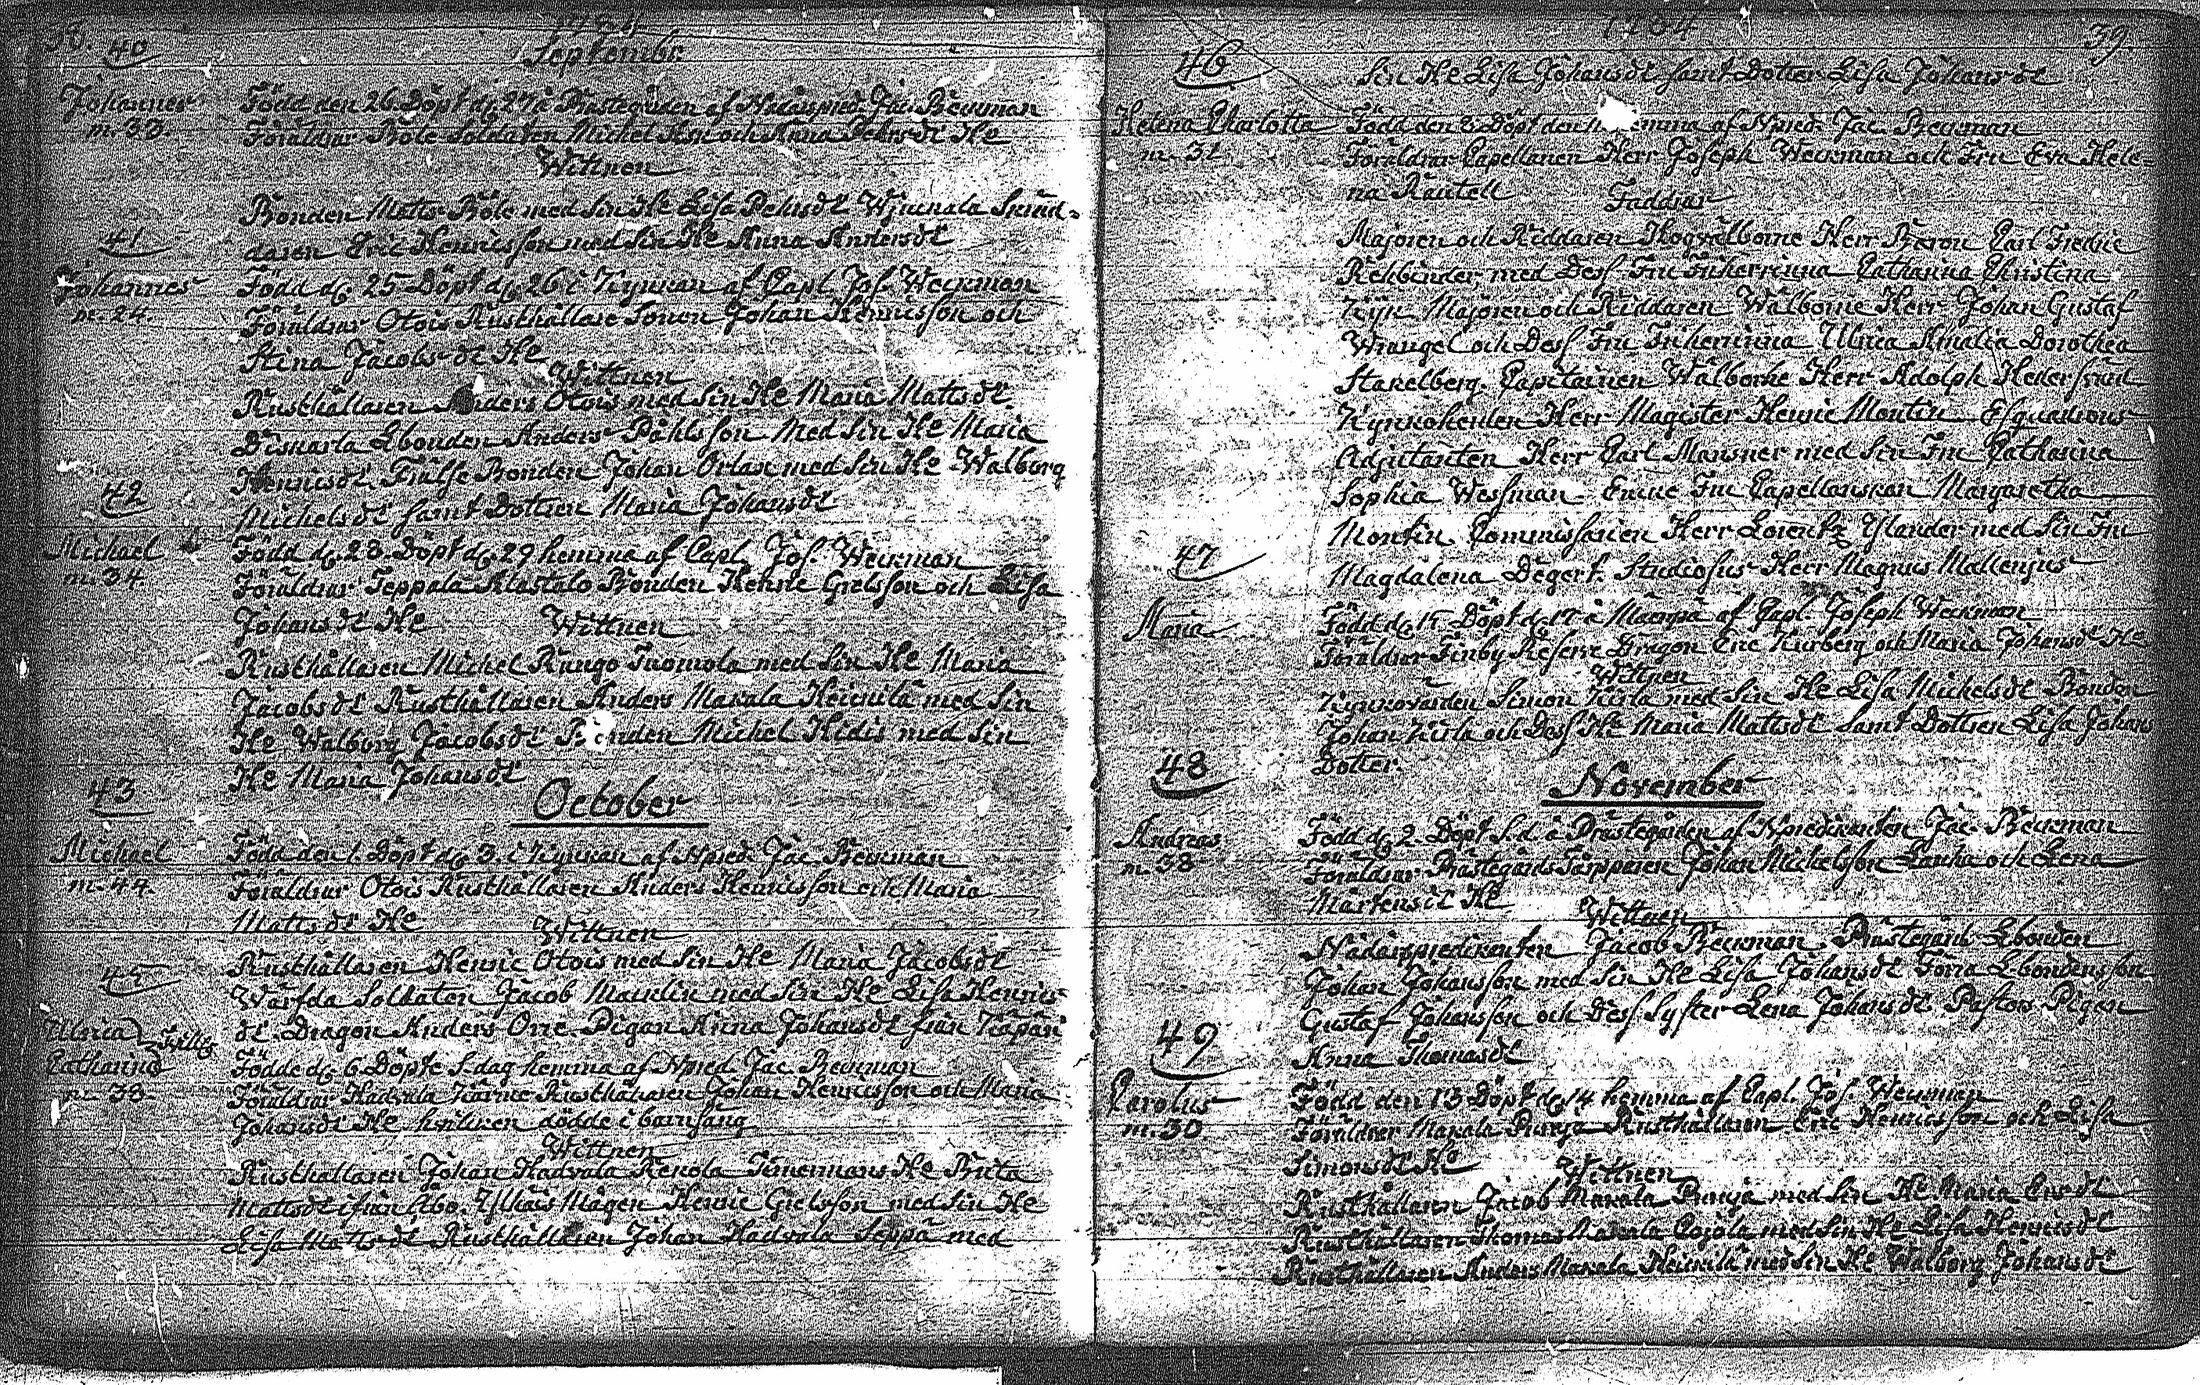 38.
1784
Septembr.
40
Johannes
m. 33.
Född den 26. Döpt dq 27 â Prästegården af Nådårspred. Jac. Beckman
Föräldrar Böle Soldaten Michel och Anna He
Wittnen
Bonden Matts Böle med Sin He Lisa
Eric Henricsson med Sin He Anna Andersdt
41
Johannes
m. 24.
Född dq 25 Döpt dq 26 i Kyrckan af Capl. Jos. Weckman
Föräldrar Otois Rusthållare Sonen Johan Henricsson och
Stina Jacobsdt He
Wittnen
Rusthållaren Anders Otois med Sin He Maria Mattsdt
Lbonden Anders Påhlsson Med Sin He Maria
Henricsdt Frälse Bonden Johan Orlax med Sin He Walborg
Michelsdt samt Dottren Maria Johansdt
42
Michael
m. 34.
Född dq. 28. Döpt dq. 29 hemma af Capl. Jos. Weckman
Föräldrar Seppala Alastalo Bonden Henric Grelsson och Lisa
Johansdt He
Wittnen
Rusthållaren Michel Rungo Tuomola med Sin He Maria
Jacobsdt Rusthållaren Anders Makala Heickilä med Sin
He Walborg Jacobsdt Bonden Michel Hidis med Sin
He Maria Johansdt
October
43
Michael
m. 44.
Född den 1. Döpt dq 3. i Kyrckan af Npred. Jac. Beckman
Föräldrar Otois Rusthållaren Anders Henricsson och Maria
Mattsdt He
Wittnen
Rusthållaren Henric Otois med Sin He Maria Jacobsdt
Wärfda Soldaten Jacob Mainlin med Sin He Lisa Henrics-
dt. Dragon Anders Orre. Pigan Anna Johansdt från
45
Ulrica
Catharina
m. 38.
Födde dq 6. Döpte S. dag hemma af Npred. Jac. Beckman
Föräldrar Hadvala Rusthållaren Johan Henricsson och Maria
Johansdt He hvilcken dödde i barnsäng
Wittnen
Rusthållaren Johan Hadvala Timermans He Brita
Mattsdt ifrån Åbo. Mågen Henric Grelsson med Sin He
Lisa Mattsdt Rusthållaren Johan Hadvala Seppä med
1784
39.
Sin He Lisa Johansdt samt Dotter Lisa Johansdt
46
Helena Charlotta
m. 31.
Född den 2. Döpt den hemma af Npred. Jac. Beckman
Föräldrar Capellanen Herr Joseph Weckman och Fru Eva Hele-
na Rautell
Faddrar
Majoren och Riddaren Högvälborne Herr Baron Carl Fredric
Rehbinder, med Dess Fru Friherrinna Catharina Christina
Majoren och Riddaren Wälborne Herr Johan Gustaf
Wrangel och Dess Fru Friherrinna Ulrica Amalia Dorothea
Stakelberg. Capitainen Wälborne Herr Adolph
Kyrkoherden Herr Magister Henric Montin Esquadrons
Adjutanten Herr Carl Mansner med Sin Fru Catharina
Sophia Wessman Fru Capellanskan Margaretha
Montin. Commissarien Herr Lorentz Yslander med Sin Fru
Magdalena Degert. Studiosus Herr Magnus Mallenius
47
Maria
Född dq 15 Döpt dq 17 â af Capl. Joseph Weckman
Föräldrar Finby Reserve Dragon Eric Kurberg och Maria Johansdt He
Wittnen
Kyrkovärden Simon Kirla med Sin He Lisa Michelsdt Bonden
Johan Kirla och Dess He Maria Mattsdt samt Dottren Lisa Johans
Dotter.
November
48
Andreas
m. 38
Född dq. 2. Döpt S. d. â Prästegården af Npredikanten Jac. Beckman
Föräldrar Prästegårds Torpparen Johan Michelsson Lauha och Lena
Mårtensdt He
Wittnen
Nådårspredikanten Jacob Beckman. Prästegårds Lbonden
Johan Johansson med Sin He Lisa Johansdt Lbondens son
Gustaf Johansson och Dess Syster Lena Johansdt Pastors Pigan
Anna Thomasdt
49
Carolus
m. 30
Född den 13 Döpt dq. 14 hemma af Capl. Jos. Weckman
Föräldrar Makala Rusthållaren Eric Henricsson och Lisa
Simonsdt He
Wittnen
Rusthållaren Jacob Makala med Sin He Maria Ericsdt
Rusthållaren Thomas Makala med Sin He Lisa Henricsdt
Rusthållaren Anders Makala Heickilä med Sin He Walborg Johansdt